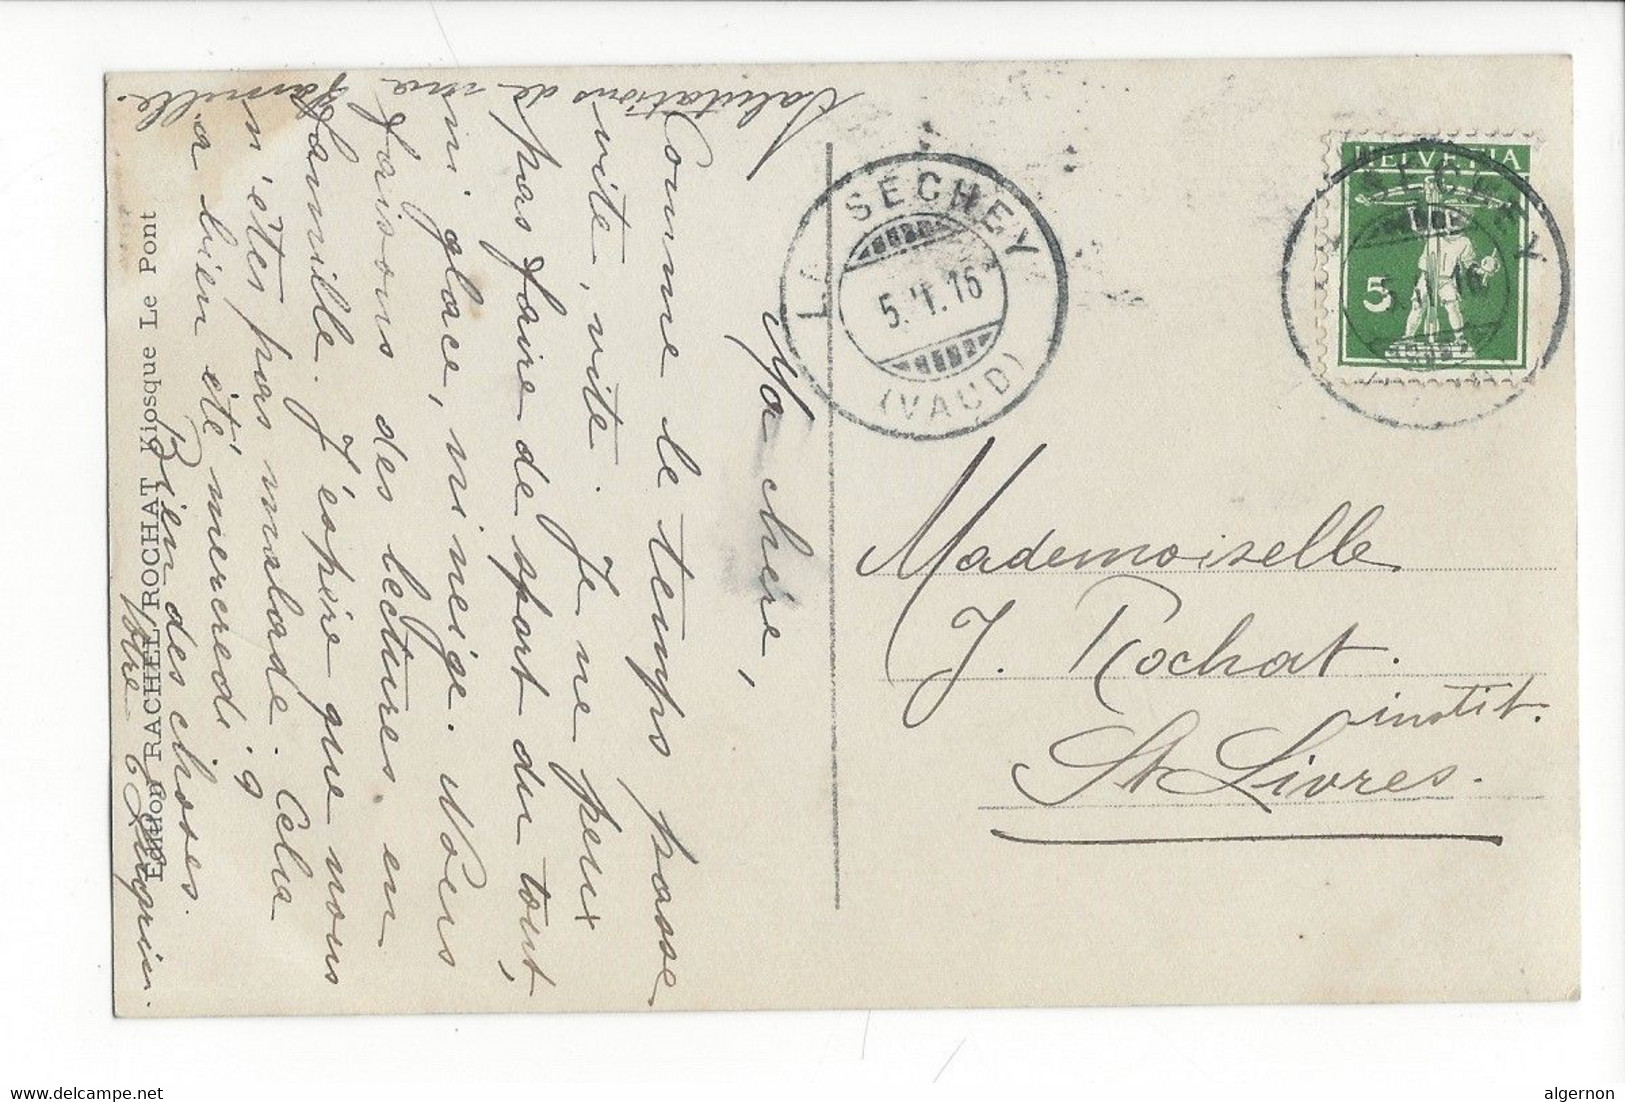 Salutations de ma
famille.
Ma chère,
Comme le temps passe
vite, vite. Je ne peux
pas faire de sport du tout,
ni glace, ni neige. Nous
faisons des lectures en
famille. J'espère que vous
n'êtes pas malade. Cela
a bien été mercredi?
Bien des choses.
Votre
Edition RACHEL ROCHAT Kiosque Le Pont
LE SÉCHEY
5.II.16
(VAUD)
HELVETIA
5
LE SÉCHEY
5.II.16
Mademoiselle
J. Rochat.
instit.
St Livres.
algernon
delcampe.net